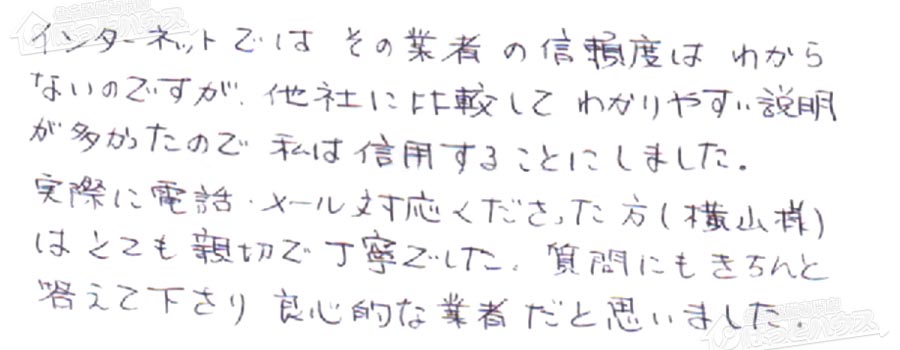 インターネットでは その業者の信頼度は わから
ないのですが、他社に比較して わかりやすい説明
が多かったので 私は信用することにしました。
実際に電話・メール対応くださった方(横山様)
はとても親切で丁寧でした。質問にもきちんと
答えて下さり 良心的な業者だと思いました。